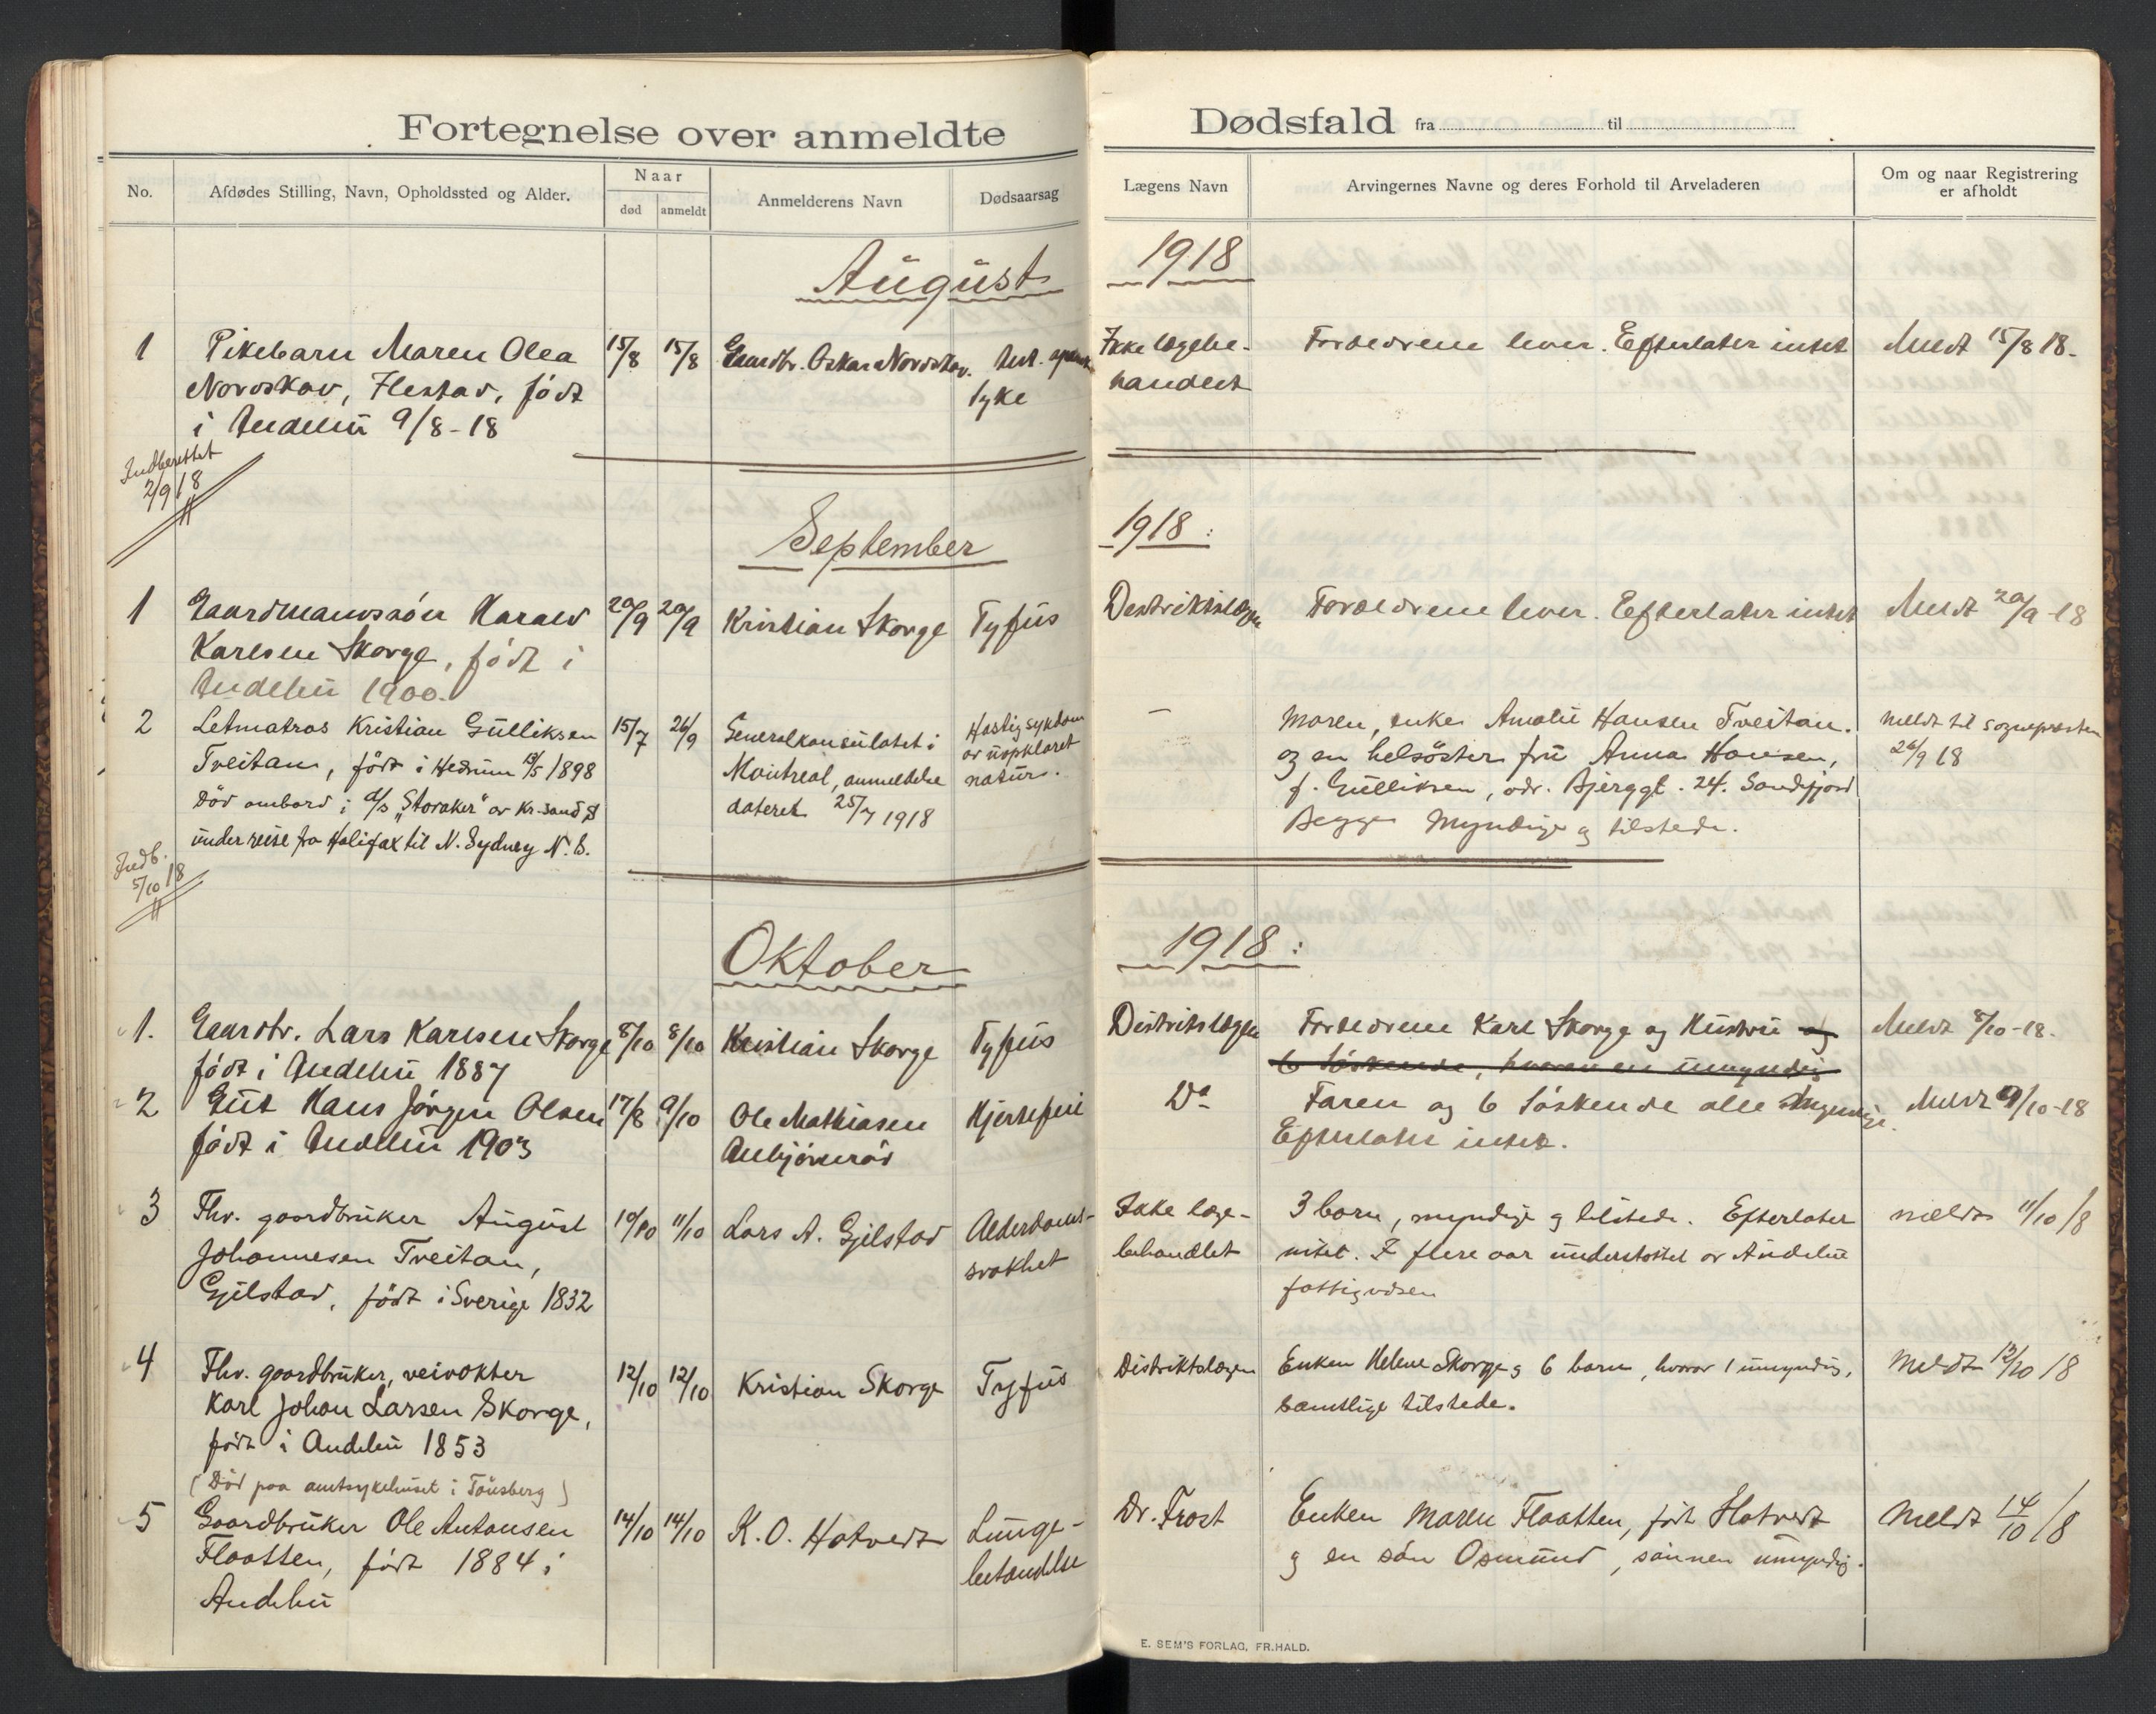 Fortegnelse over anmeldte
Dødsfald fra til
No.
Afdødes Stilling, Navn, Opholdssted og Alder.
Naar
død
anmeldt
Anmelderens Navn
Dødsaarsag
Lægens Navn
Arvingernes Navne og deres Forhold til Arveladeren
Om og naar Registrering
er afholdt
August
1918
1 Pikebarn Maren Olea 15/8 15/8 Gaardbr. Oskar Nordskov. Ikke lægebe- Forældrene lever. Efterlater intet Meldt 15/8 18.
Nordskov, Ilestad, født syke handlet
i Andebu 9/8-18
Indberettet
2/9 18
September
1918:
1 Gaardmandssøn Harald 20/9 20/9 Kristian Skorge Tyfus Destriktslægen Forældrene lever. Efterlater intet Meldt 20/9-18
Karlsen Skorge, født i
Andebu 1900.
2 Letmatros Kristian Gulliksen 15/7 26/9 Generalkonsulatet i Hastig sykdom — Moren, enke Amalie Hansen Tveitan. meldt til sognepræsten
Tveitan, født i Hedrum 13/5 1898 Montreal, anmeldelse av uopklaret og en helsøster fru Anna Hansen, 26/9 18
død ombord i d/s "Storaker" av Kr.sand S dateret 25/7 1918 natur. f. Gulliksen, adr. Bjerggt. 24. Sandefjord
under reise fra Halifax til N. Sydney N.S. Begge Myndige og tilstede.
Indb.
5/10 18
Oktober
1918:
1. Gaardbr. Lars Karlsen Skorge 8/10 8/10 Kristian Skorge Tyfus Distriktslægen Forældrene Karl Skorge og Hustru og Meldt 8/10-18.
født i Andebu 1887 6 søskende, hvorav en umyndig
2 Gut Hans Jørgen Olsen 17/8 9/10 Ole Mathiasen Hjertefeil Do Faren og 6 søskende alle Myndige. Meldt 9/10-18
født i Andebu 1903 Efterlater intet.
3 Fhv. gaardbruker August 10/10 11/10 Lars A. Gjelstad Alderdoms- Ikke læge- 3 barn, myndige og tilstede. Efterlater meldt 11/10 18
Johannesen Tveitan, svakhet behandlet intet. I flere aar understøttet av Andebu
Gjelstad, født i Sverige 1832 fattigvæsen
4 Fhv. gaardbruker, veivokter 12/10 12/10 Kristian Skorge Tyfus Distriktslægen Enken Helene Skorge og 6 barn, hvorav 1 umyndig, Meldt 12/10 18
Karl Johan Larsen Skorge, samtlige tilstede.
født i Andebu 1853
(Død paa amtsykehuset i Tønsberg)
5 Gaardbruker Ole Antonsen 14/10 14/10 K. O. Hotvedt Lunge- Dr. Frost Enken Maren Flaatten, født Hotvedt Meldt 14/10 18
Flaatten, født 1884 i betændelse og en søn Osmund, sønnen umyndig.
Andebu
E. SEM'S FORLAG, FR.HALD.